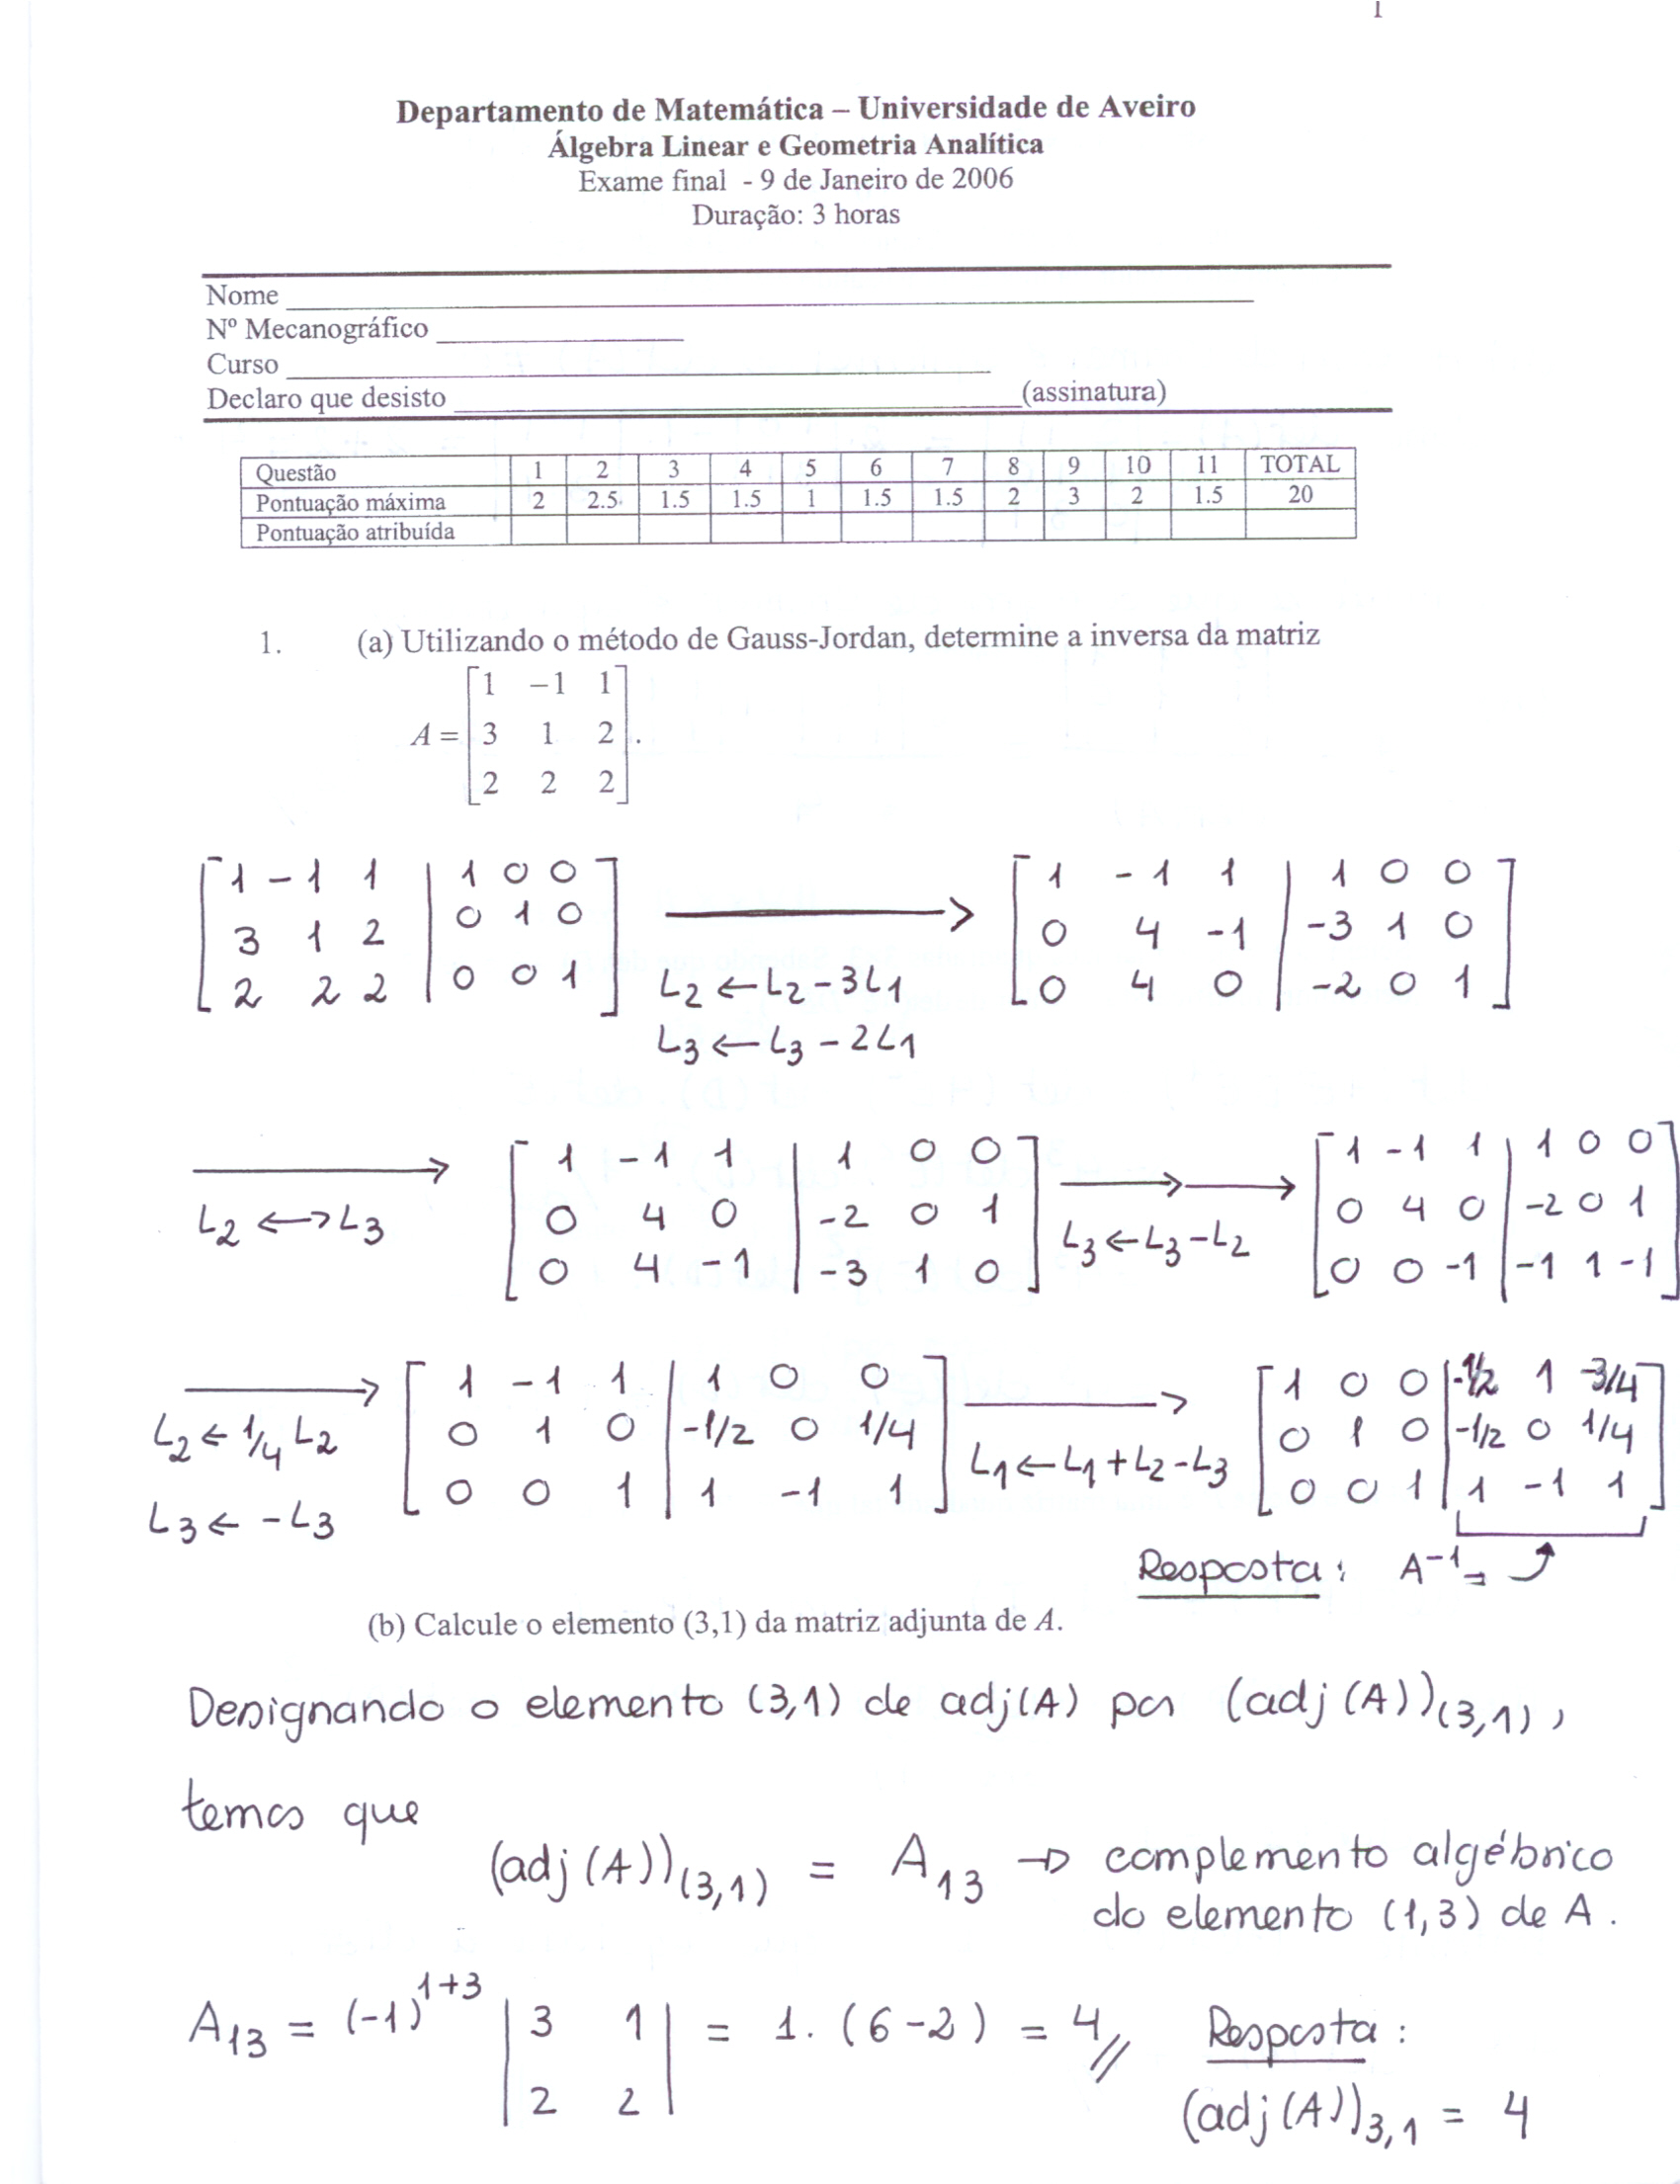 1
Departamento de Matemática – Universidade de Aveiro
Álgebra Linear e Geometria Analítica
Exame final - 9 de Janeiro de 2006
Duração: 3 horas
Nome
Nº Mecanográfico
Curso
Declaro que desisto (assinatura)
Questão 1 2 3 4 5 6 7 8 9 10 11 TOTAL
Pontuação máxima 2 2.5 1.5 1.5 1 1.5 1.5 2 3 2 1.5 20
Pontuação atribuída
1. (a) Utilizando o método de Gauss-Jordan, determine a inversa da matriz
1 −1 1
A = 3 1 2 .
2 2 2
1 -1 1 | 1 0 0 1 -1 1 | 1 0 0
3 1 2 | 0 1 0 → 0 4 -1 | -3 1 0
2 2 2 | 0 0 1 L2 ← L2 - 3L1 0 4 0 | -2 0 1
L3 ← L3 - 2L1
→ 1 -1 1 | 1 0 0 → → 1 -1 1 | 1 0 0
L2 ↔ L3 0 4 0 | -2 0 1 L3 ← L3 - L2 0 4 0 | -2 0 1
0 4 -1 | -3 1 0 0 0 -1 | -1 1 -1
→ 1 -1 1 | 1 0 0 → 1 0 0 | -1/2 1 -3/4
L2 ← 1/4 L2 0 1 0 | -1/2 0 1/4 L1 ← L1 + L2 - L3 0 1 0 | -1/2 0 1/4
L3 ← -L3 0 0 1 | 1 -1 1 0 0 1 | 1 -1 1
Resposta: A⁻¹ =
(b) Calcule o elemento (3,1) da matriz adjunta de A.
Designando o elemento (3,1) de adj(A) por (adj(A))(3,1),
temos que
(adj(A))(3,1) = A13 → complemento algébrico
do elemento (1,3) de A.
A13 = (-1)^1+3 | 3 1 | = 1. (6-2) = 4// Resposta:
| 2 2 | (adj(A))3,1 = 4